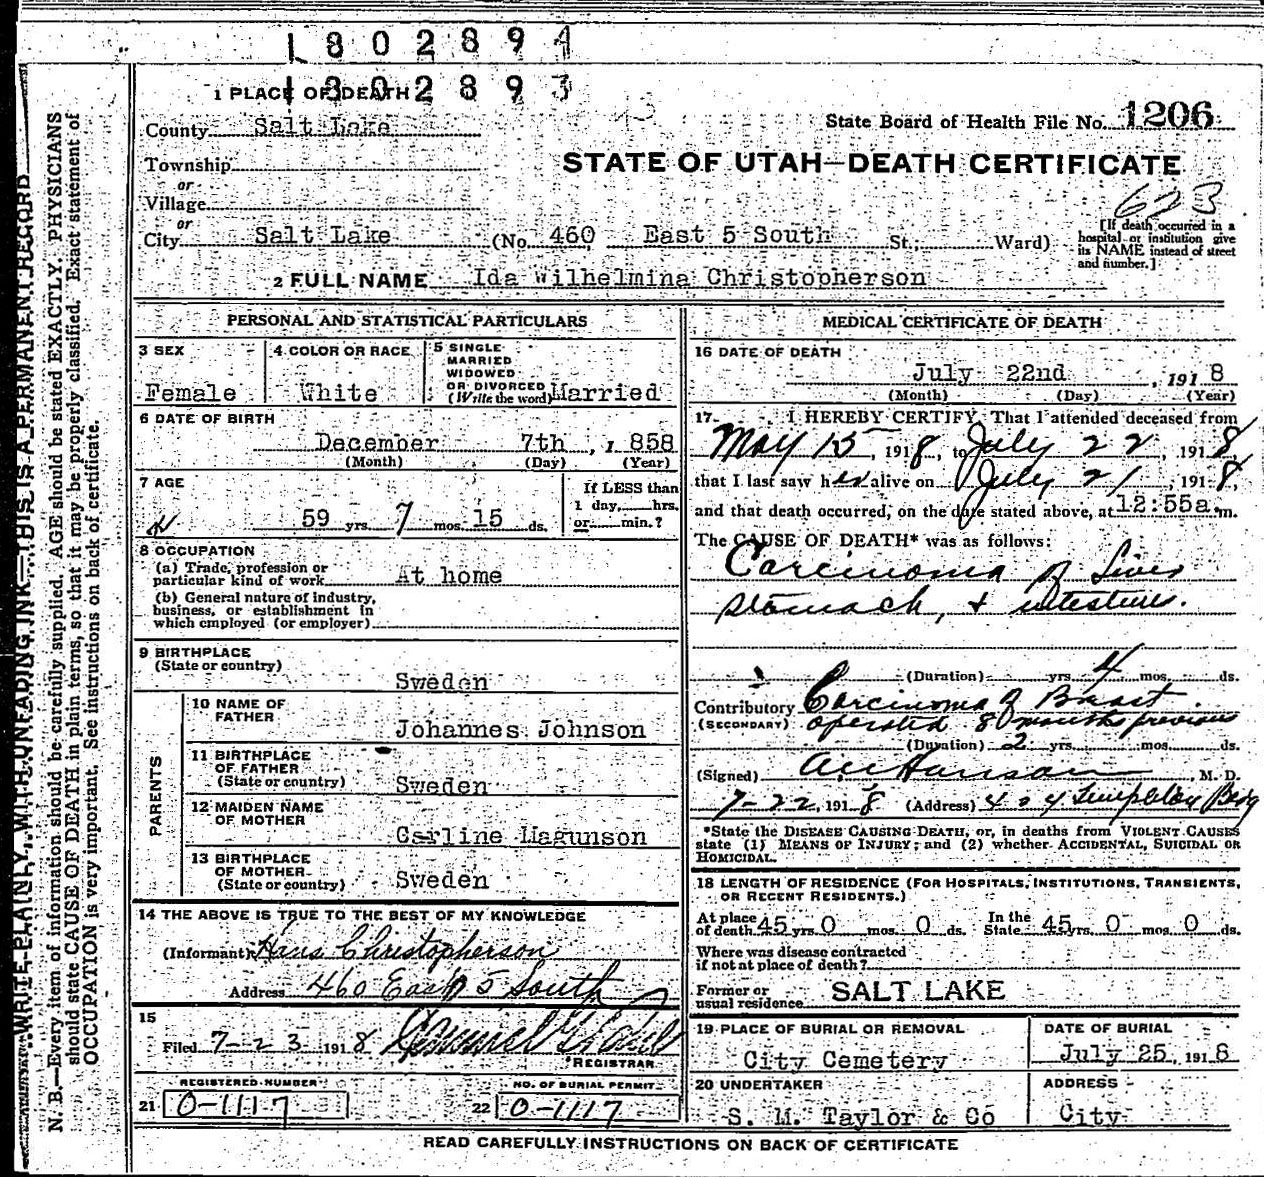 1802894
1302893
1 PLACE OF DEATH
County Salt Lake
State Board of Health File No. 1206
Township
or
Village
or
City Salt Lake (No. 460 East 5 South St.; Ward)
STATE OF UTAH—DEATH CERTIFICATE
623
[If death occurred in a
hospital or institution give
its NAME instead of street
and number.]
2 FULL NAME Ida Wilhelmina Christopherson
PERSONAL AND STATISTICAL PARTICULARS
3 SEX
Female
4 COLOR OR RACE
White
5 SINGLE
MARRIED
WIDOWED
OR DIVORCED
(Write the word) Married
6 DATE OF BIRTH
December 7th, 1858
(Month) (Day) (Year)
7 AGE
59 yrs. 7 mos. 15 ds.
If LESS than
1 day, hrs.
or min.?
8 OCCUPATION
(a) Trade, profession or
particular kind of work At home
(b) General nature of industry,
business, or establishment in
which employed (or employer)
9 BIRTHPLACE
(State or country)
Sweden
PARENTS
10 NAME OF
FATHER
Johannes Johnson
11 BIRTHPLACE
OF FATHER
(State or country) Sweden
12 MAIDEN NAME
OF MOTHER
Carline Magunson
13 BIRTHPLACE
OF MOTHER
(State or country) Sweden
14 THE ABOVE IS TRUE TO THE BEST OF MY KNOWLEDGE
(Informant) Hans Christopherson
Address 460 East 5 South
15
Filed 7-23 1918
REGISTRAR
REGISTERED NUMBER
21 O-1117
NO. OF BURIAL PERMIT
22 O-1117
MEDICAL CERTIFICATE OF DEATH
16 DATE OF DEATH
July 22nd, 1918
(Month) (Day) (Year)
17 I HEREBY CERTIFY, That I attended deceased from
May 15, 1918, to July 22, 1918,
that I last saw her alive on July 21, 1918,
and that death occurred, on the date stated above, at 12:55a.m.
The CAUSE OF DEATH* was as follows:
Carcinoma of Liver
stomach, & intestines.
(Duration) yrs. 4 mos. ds.
Contributory Carcinoma of Breast
(SECONDARY) operated 8 months previous
(Duration) 2 yrs. mos. ds.
(Signed) Hanson, M. D.
7-22, 1918 (Address) 404 Templeton Bldg
*State the DISEASE CAUSING DEATH, or, in deaths from VIOLENT CAUSES
state (1) MEANS OF INJURY; and (2) whether ACCIDENTAL, SUICIDAL OR
HOMICIDAL.
18 LENGTH OF RESIDENCE (FOR HOSPITALS, INSTITUTIONS, TRANSIENTS,
OR RECENT RESIDENTS.)
At place
of death 45 yrs. 0 mos. 0 ds.
In the
State 45 yrs. 0 mos. 0 ds.
Where was disease contracted
if not at place of death?
Former or
usual residence SALT LAKE
19 PLACE OF BURIAL OR REMOVAL
City Cemetery
DATE OF BURIAL
July 25, 1918
20 UNDERTAKER
S. M. Taylor & Co
ADDRESS
City
READ CAREFULLY INSTRUCTIONS ON BACK OF CERTIFICATE
WRITE PLAINLY, WITH UNFADING INK—THIS IS A PERMANENT RECORD
N. B.—Every item of information should be carefully supplied. AGE should be stated EXACTLY. PHYSICIANS
should state CAUSE OF DEATH in plain terms, so that it may be properly classified. Exact statement of
OCCUPATION is very important. See instructions on back of certificate.